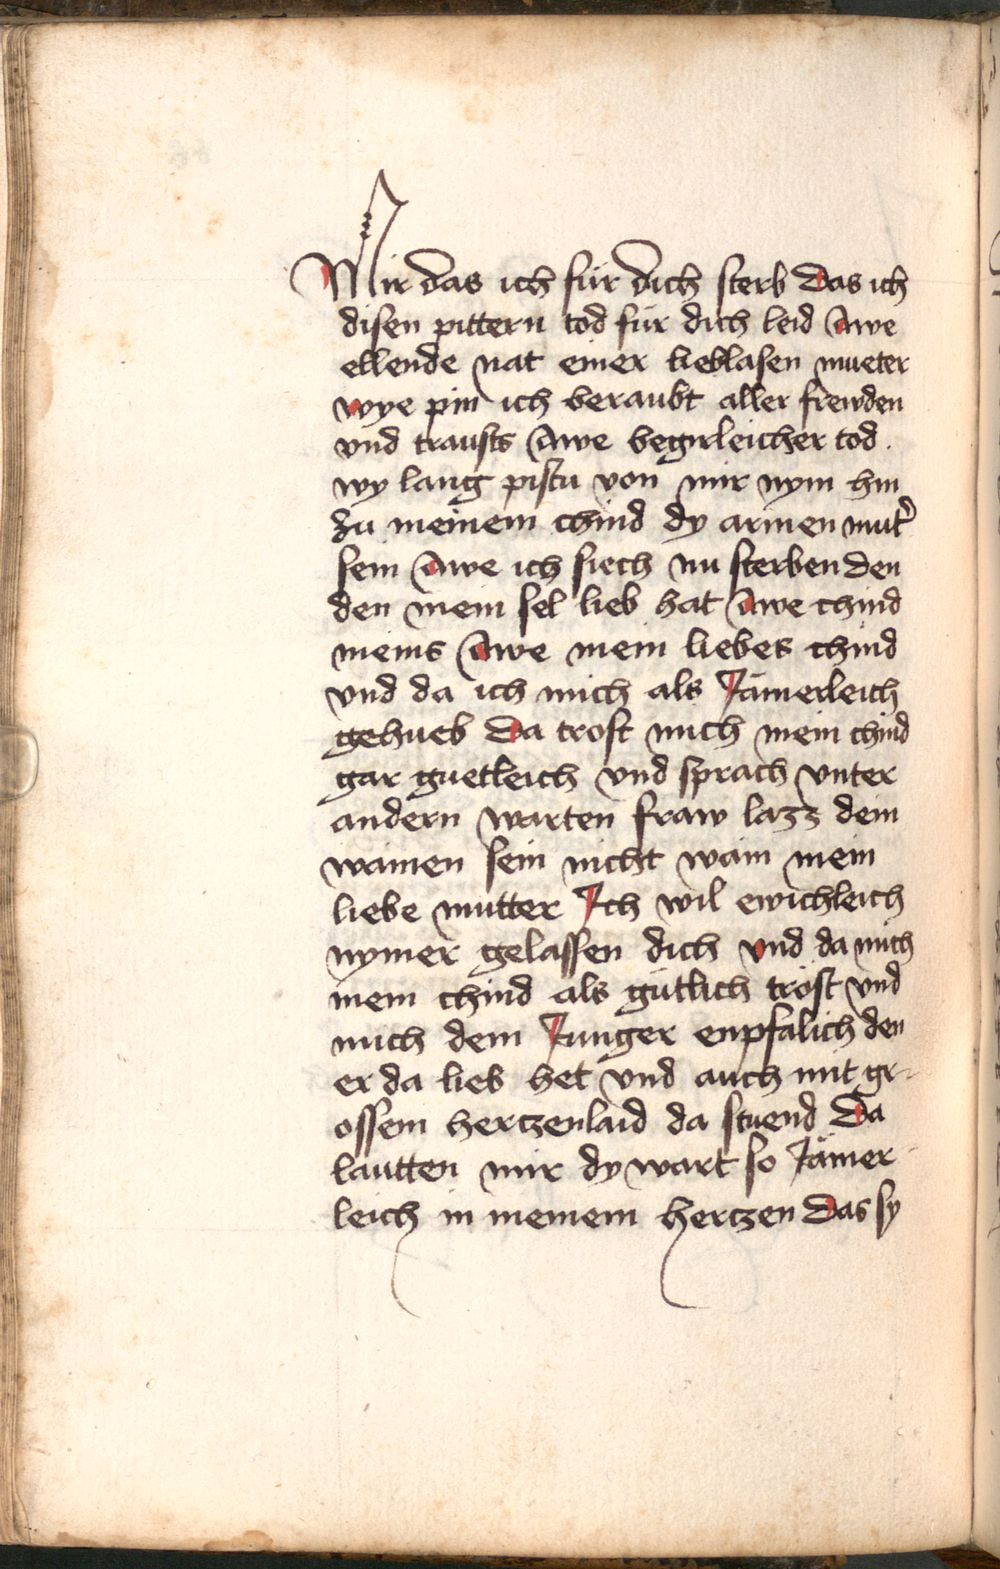 Mir das ich für dich sterb Das ich
disen pittern tod für dich leid Awe
ellende nat einer lieblasen mueter
wye pin ich beraubt aller frewden
vnd trausts Awe begirleicher tod.
wy lang pistu von mir nym hin
zu meinem chind dy armen mut̾
sein Awe ich siech nu sterben den
den mein sel lieb hat Awe chind
meins Awe mein liebes chind
vnd da ich mich als Jämerleich
gehueb Da trost mich mein chind
gar guetleich vnd sprach vnter
andern warten fraw lazz dein
wainen sein nicht wain mein
liebe mutter Ich wil ewichleich
nymer gelassen dich vnd da mich
mein chind als gütlich tröst vnd
mich dem Junger enpfalich den
er da lieb het vnd auch mit gr-
ossem hertzenlaid da stuend Da
lautten mir dy wart so Jämer-
leich in meinem hertzen Das sy